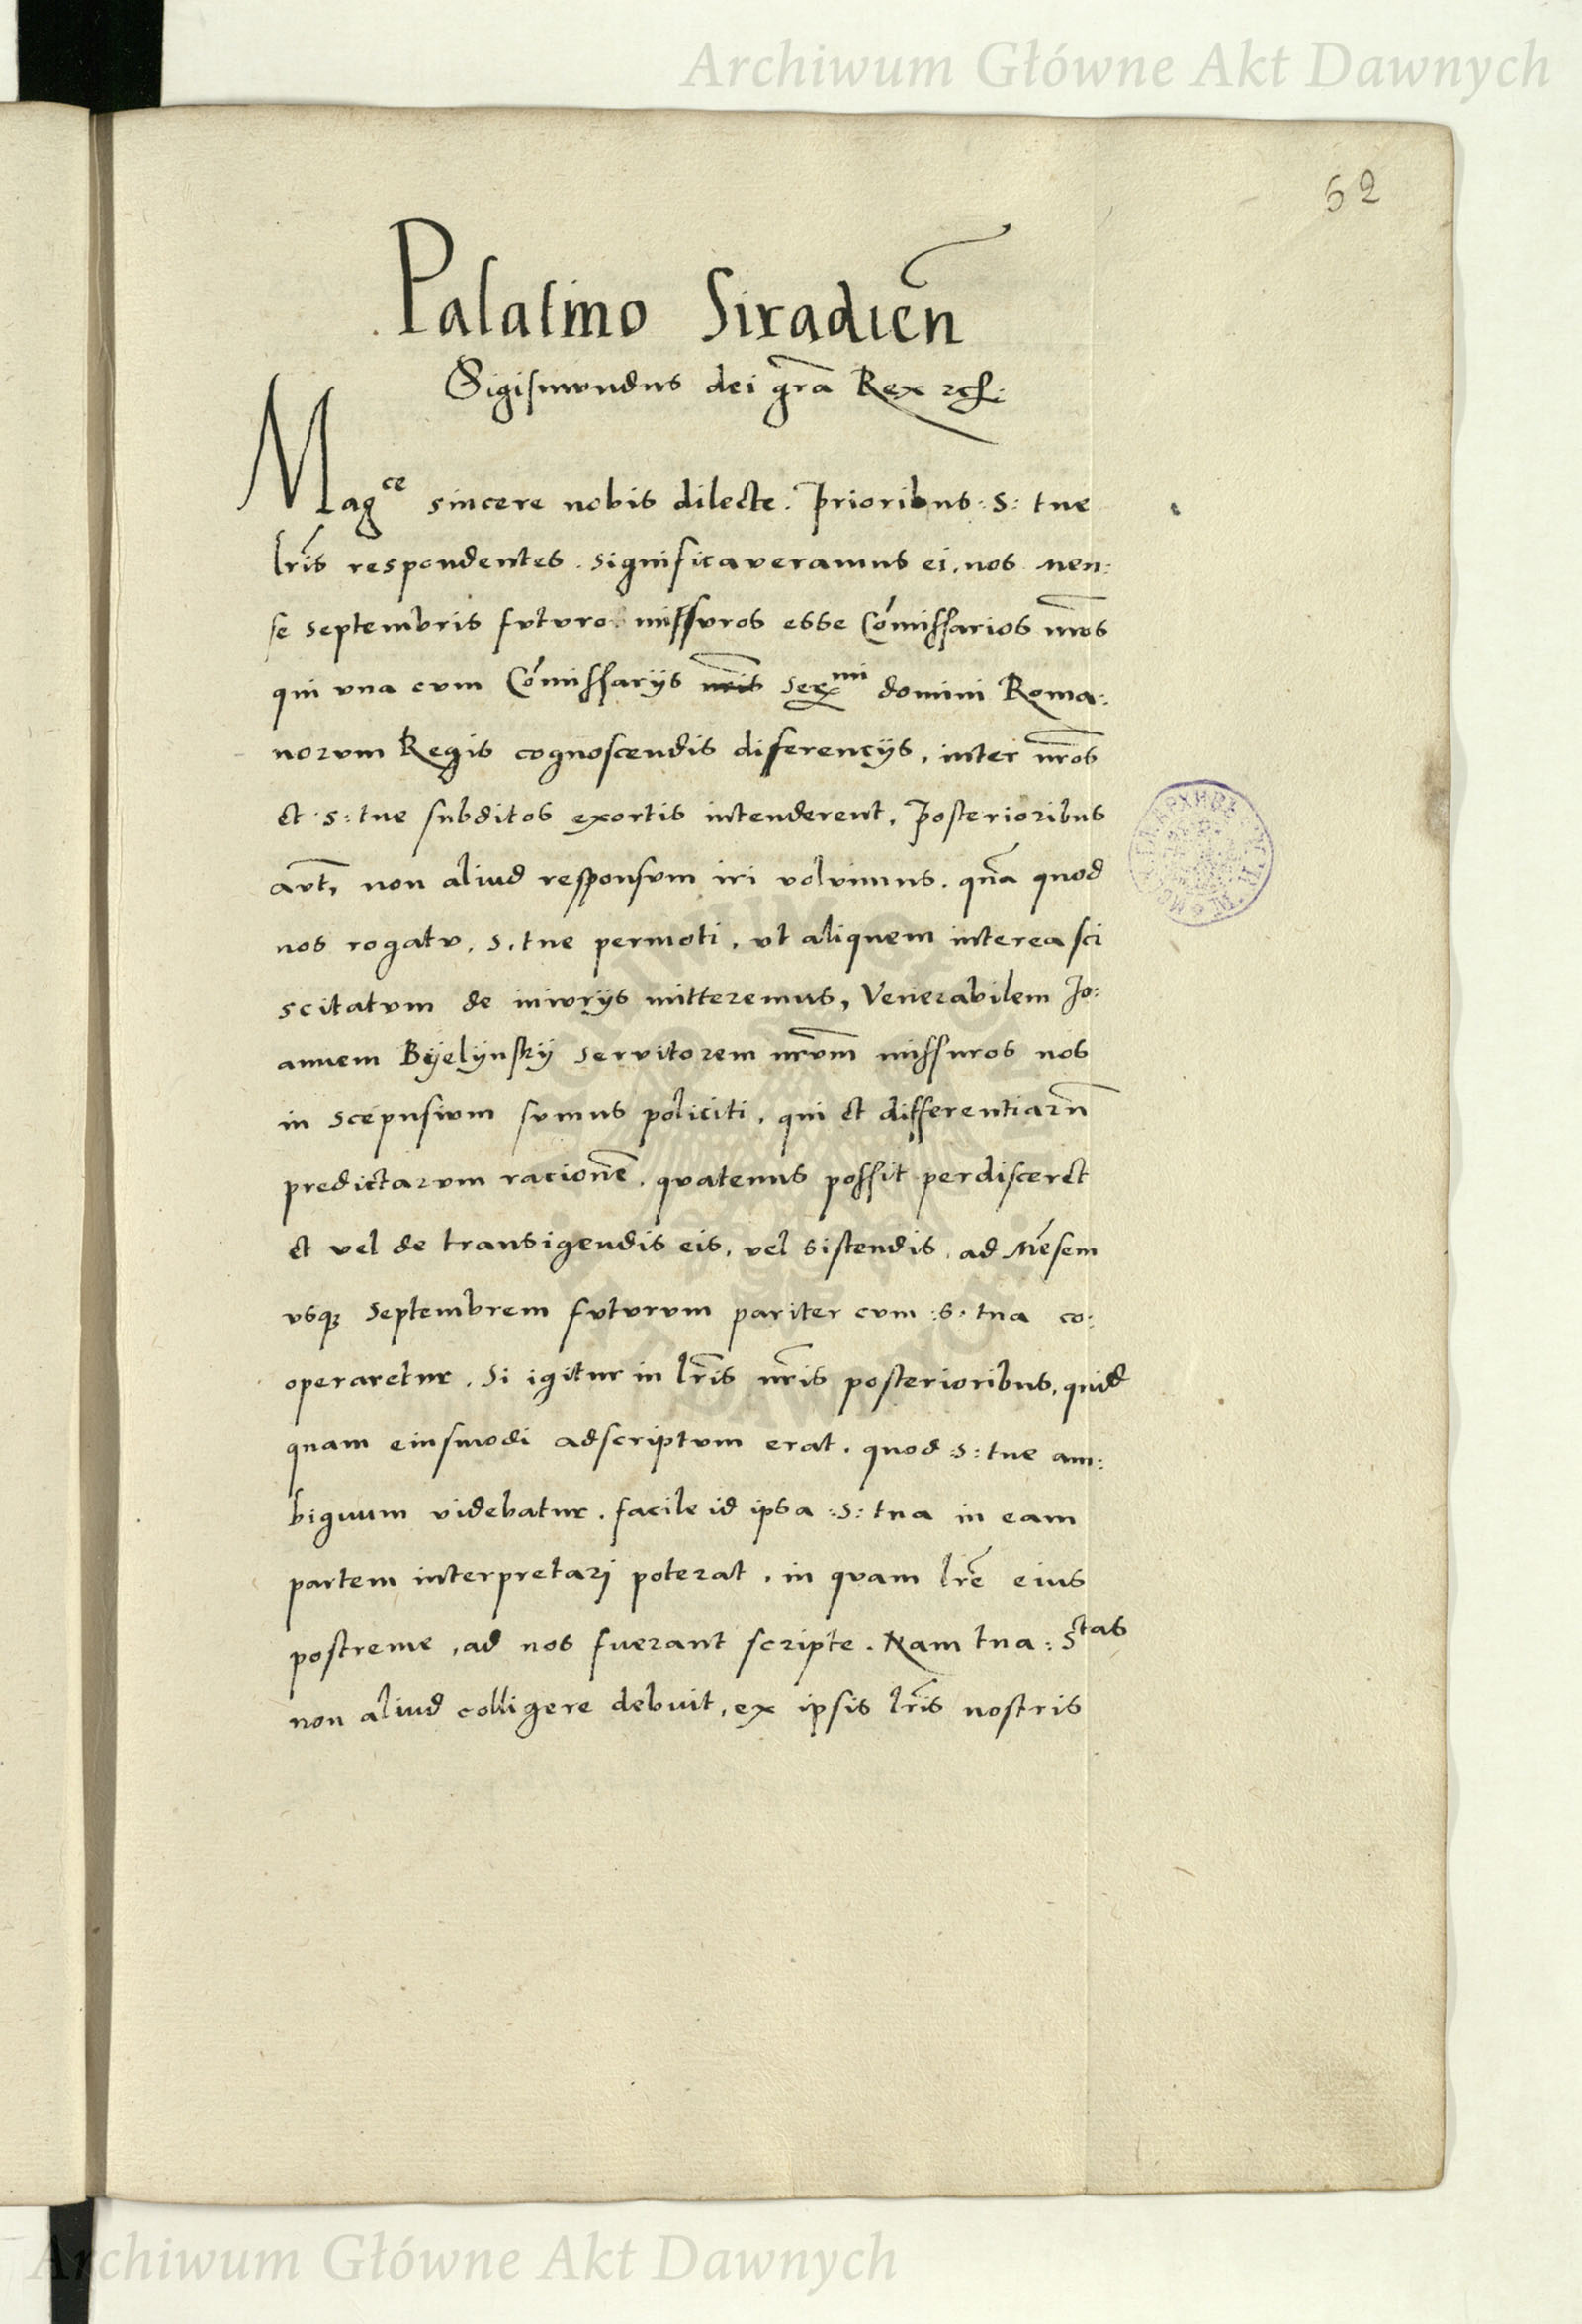 Archiwum Główne Akt Dawnych
62
Palatino Siradien̄
Sigismundus dei gr̄a Rex ꝛc̄:
Magce sincere nobis dilecte. Prioribus :S: tue
lr̄is respondentes. significaveramus ei. nos men:
se septembris futuro missuros esse Cōmissarios nr̄os
qui vna cum Cōmissarijs nr̄is Sermi domini Roma:
norum Regis cognoscendis diferencijs, inter nr̄os
et :S: tue subditos exortis intenderent. Posterioribus
aut̄, non aliud responsum iri volvimus. qn̄a quod
nos rogatu. S. tue permoti, vt aliquem interea sci
scitatum de iniurijs mitteremus, Venerabilem Jo:
annem Byelynsky servitorem nr̄vm missuros nos
in scepusium sumus policiti. qui et differentiarū
predictarum racionē. quatenus possit perdisceret
et vel de transigendis eis, vel sistendis, ad Mēsem
vsqꝫ Septembrem futurum pariter cum :S: tua co:
operaretur. Si igitur in lr̄is nr̄is posterioribus, quid
quam eiusmodi adscriptum erat. quod :S: tue am:
biguum videbatur. facile id ipsa :S: tua in eam
partem interpretari poterat. in quam lr̄e eius
postreme, ad nos fuerant scripte. Nam tua: Stas
non aliud colligere debuit, ex ipsis lr̄is nostris
Archiwum Główne Akt Dawnych